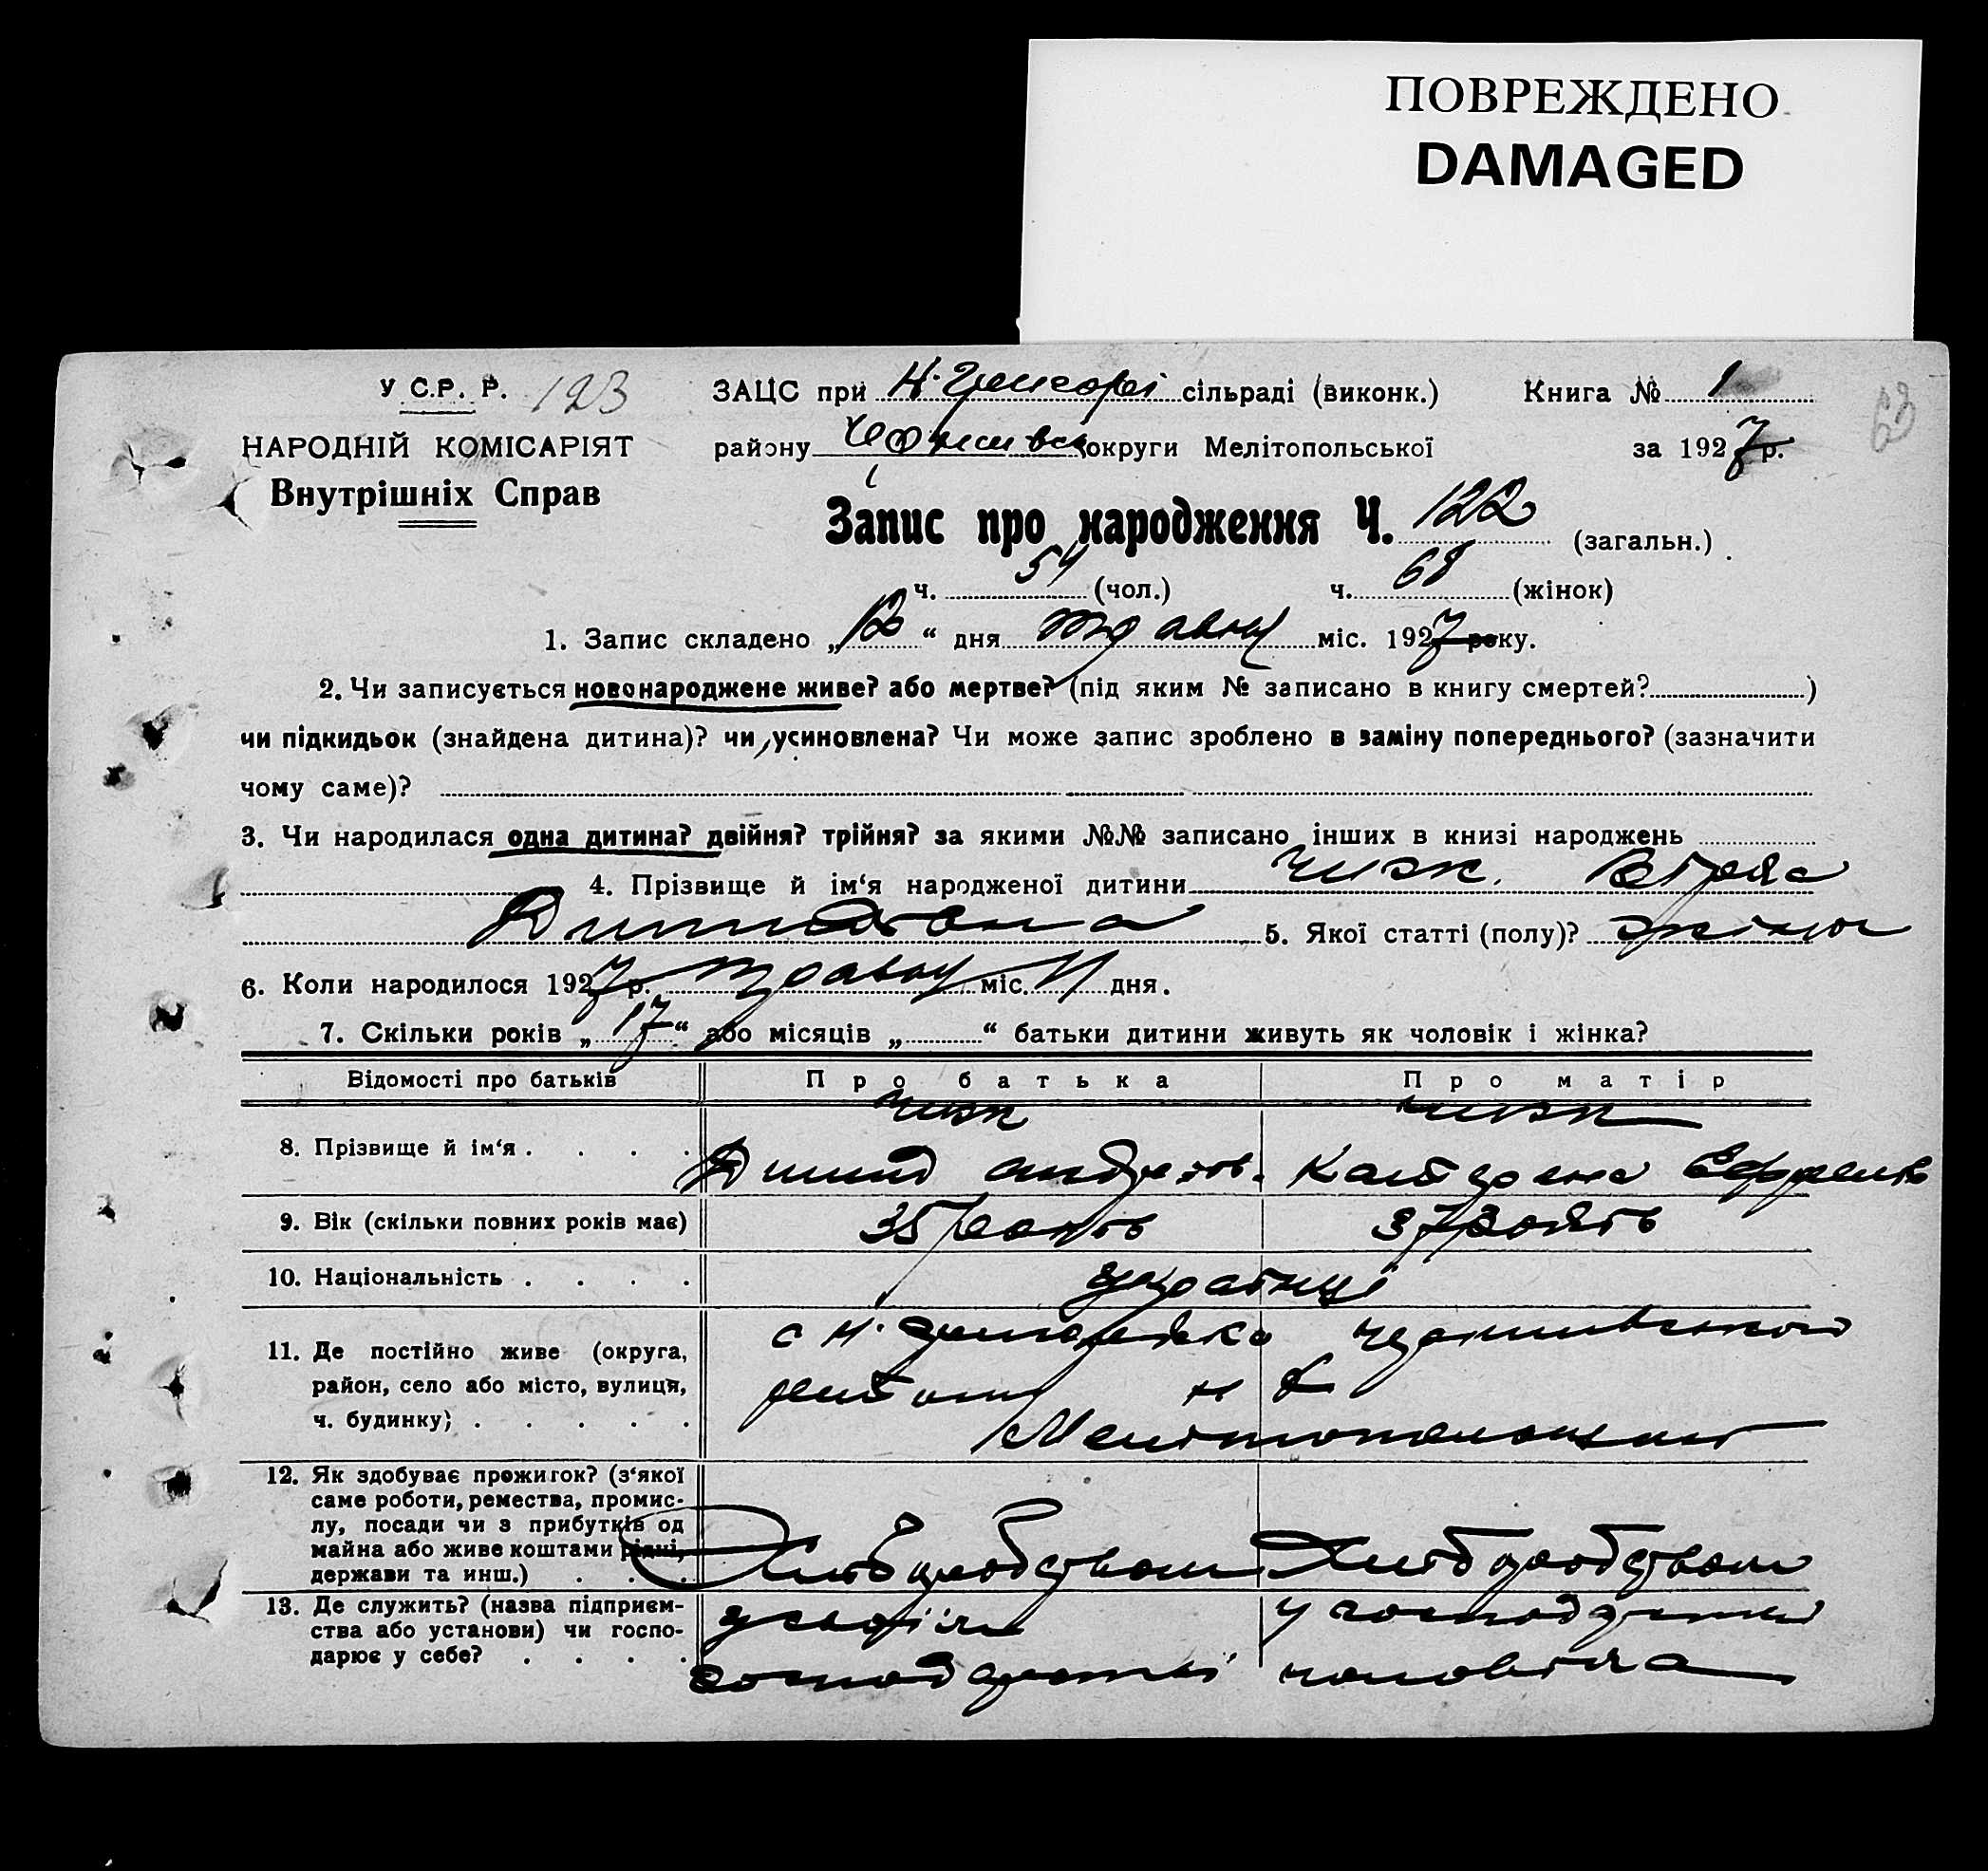 ПОВРЕЖДЕНО
DAMAGED
У С.Р.Р. 123 ЗАЦС при сільраді (виконк.) Книга № 1
63
НАРОДНІЙ КОМІСАРІЯТ району округи Мелітопольської за 1927 р.
Внутрішніх Справ
Запис про народження Ч. 122 (загальн.)
ч. 54 (чол.) ч. 68 (жінок)
1. Запис складено „12“ дня травня міс. 1927 року.
2. Чи записується новонароджене живе? або мертве? (під яким № записано в книгу смертей? )
чи підкидьок (знайдена дитина)? чи усиновлена? Чи може запис зроблено в заміну попереднього? (зазначити
чому саме)?
3. Чи народилася одна дитина? двійня? трійня? за якими №№ записано інших в книзі народжень
4. Прізвище й ім‘я народженої дитини Чизк.
5. Якої статті (полу)?
6. Коли народилося 1927 р. травня міс. 11 дня.
7. Скільки років „17“ або місяців „ “ батьки дитини живуть як чоловік і жінка?
Відомості про батьків Про батька Про матір
8. Прізвище й ім‘я . . . .
9. Вік (скільки повних років має) 35 37
10. Національність . . . . українці
11. Де постійно живе (округа,
район, село або місто, вулиця,
ч. будинку) . . . . .
12. Як здобуває прожиток? (з‘якої
саме роботи, ремества, промис-
лу, посади чи з прибутків од
майна або живе коштами рідні,
держави та инш.) . . . Хліборобством Хліборобством
13. Де служить? (назва підприєм-
ства або установи) чи госпо-
дарює у себе? . . . . чоловіка